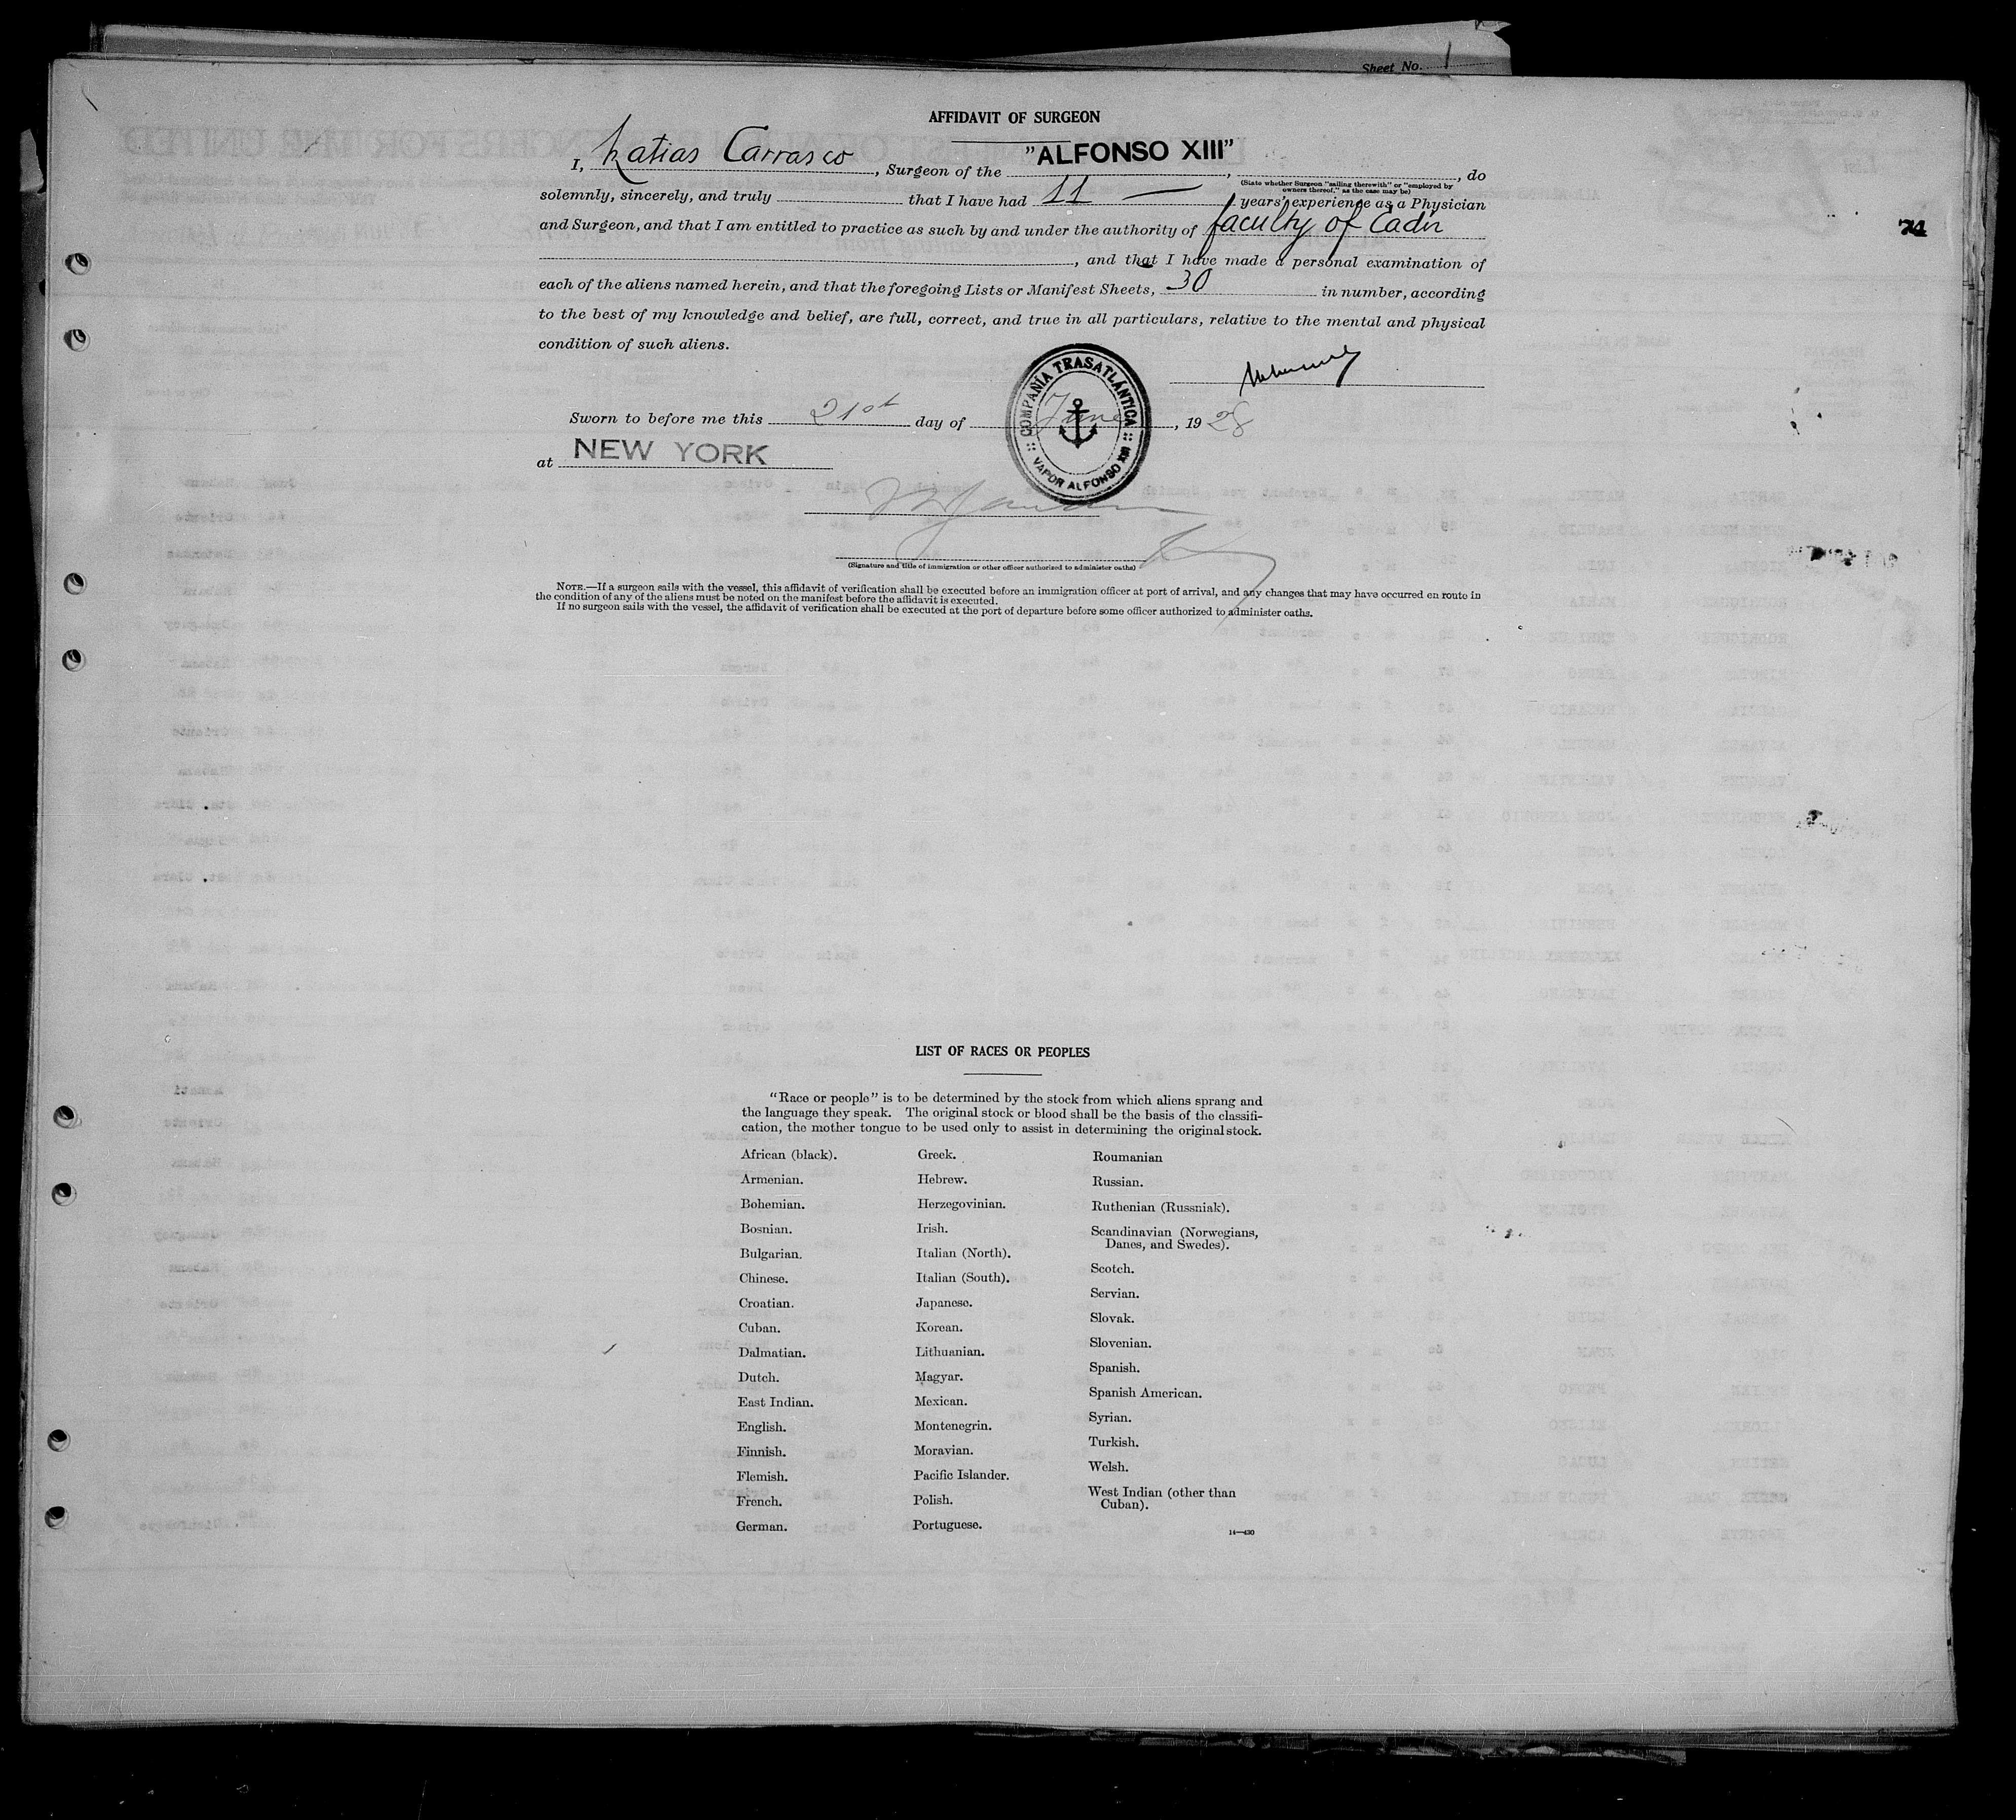 Sheet No. 1
AFFIDAVIT OF SURGEON
I, Matias Carrasco, Surgeon of the "ALFONSO XIII", , do
(State whether Surgeon "sailing therewith" or "employed by
owners thereof," as the case may be)
solemnly, sincerely, and truly that I have had 11 — years' experience as a Physician
and Surgeon, and that I am entitled to practice as such by and under the authority of faculty of Cadiz
, and that I have made a personal examination of
74
each of the aliens named herein, and that the foregoing Lists or Manifest Sheets, 30 in number, according
to the best of my knowledge and belief, are full, correct, and true in all particulars, relative to the mental and physical
condition of such aliens.
COMPAÑIA TRASATLÁNTICA
VAPOR ALFONSO XIII
Sworn to before me this 21st day of June, 1928
at NEW YORK
(Signature and title of immigration or other officer authorized to administer oaths)
NOTE.—If a surgeon sails with the vessel, this affidavit of verification shall be executed before an immigration officer at port of arrival, and any changes that may have occurred en route in
the condition of any of the aliens must be noted on the manifest before the affidavit is executed.
If no surgeon sails with the vessel, the affidavit of verification shall be executed at the port of departure before some officer authorized to administer oaths.
LIST OF RACES OR PEOPLES
"Race or people" is to be determined by the stock from which aliens sprang and
the language they speak. The original stock or blood shall be the basis of the classifi-
cation, the mother tongue to be used only to assist in determining the original stock.
African (black).
Armenian.
Bohemian.
Bosnian.
Bulgarian.
Chinese.
Croatian.
Cuban.
Dalmatian.
Dutch.
East Indian.
English.
Finnish.
Flemish.
French.
German.
Greek.
Hebrew.
Herzegovinian.
Irish.
Italian (North).
Italian (South).
Japanese.
Korean.
Lithuanian.
Magyar.
Mexican.
Montenegrin.
Moravian.
Pacific Islander.
Polish.
Portuguese.
Roumanian
Russian.
Ruthenian (Russniak).
Scandinavian (Norwegians,
Danes, and Swedes).
Scotch.
Servian.
Slovak.
Slovenian.
Spanish.
Spanish American.
Syrian.
Turkish.
Welsh.
West Indian (other than
Cuban).
14—430